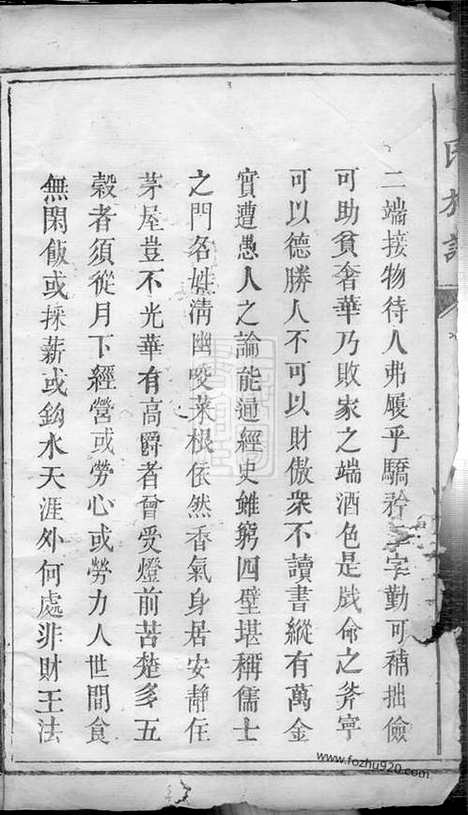 二端接物待人弗履乎驕矜二字勤可補拙儉
可助貧奢華乃敗家之端酒色是戕命之斧寧
可以德勝人不可以財傲衆不讀書縱有萬金
實遭愚人之論能通經史雖窮四壁堪稱儒士
之門名姓淸幽咬菜根依然香氣身居安靜住
茅屋豈不光華有高爵者曾受燈前苦楚多五
穀者須從月下經營或勞心或勞力人世間食
無閑飯或採薪或鈎水天涯外何處非財王法
氏族譜
www.fozhu920.com